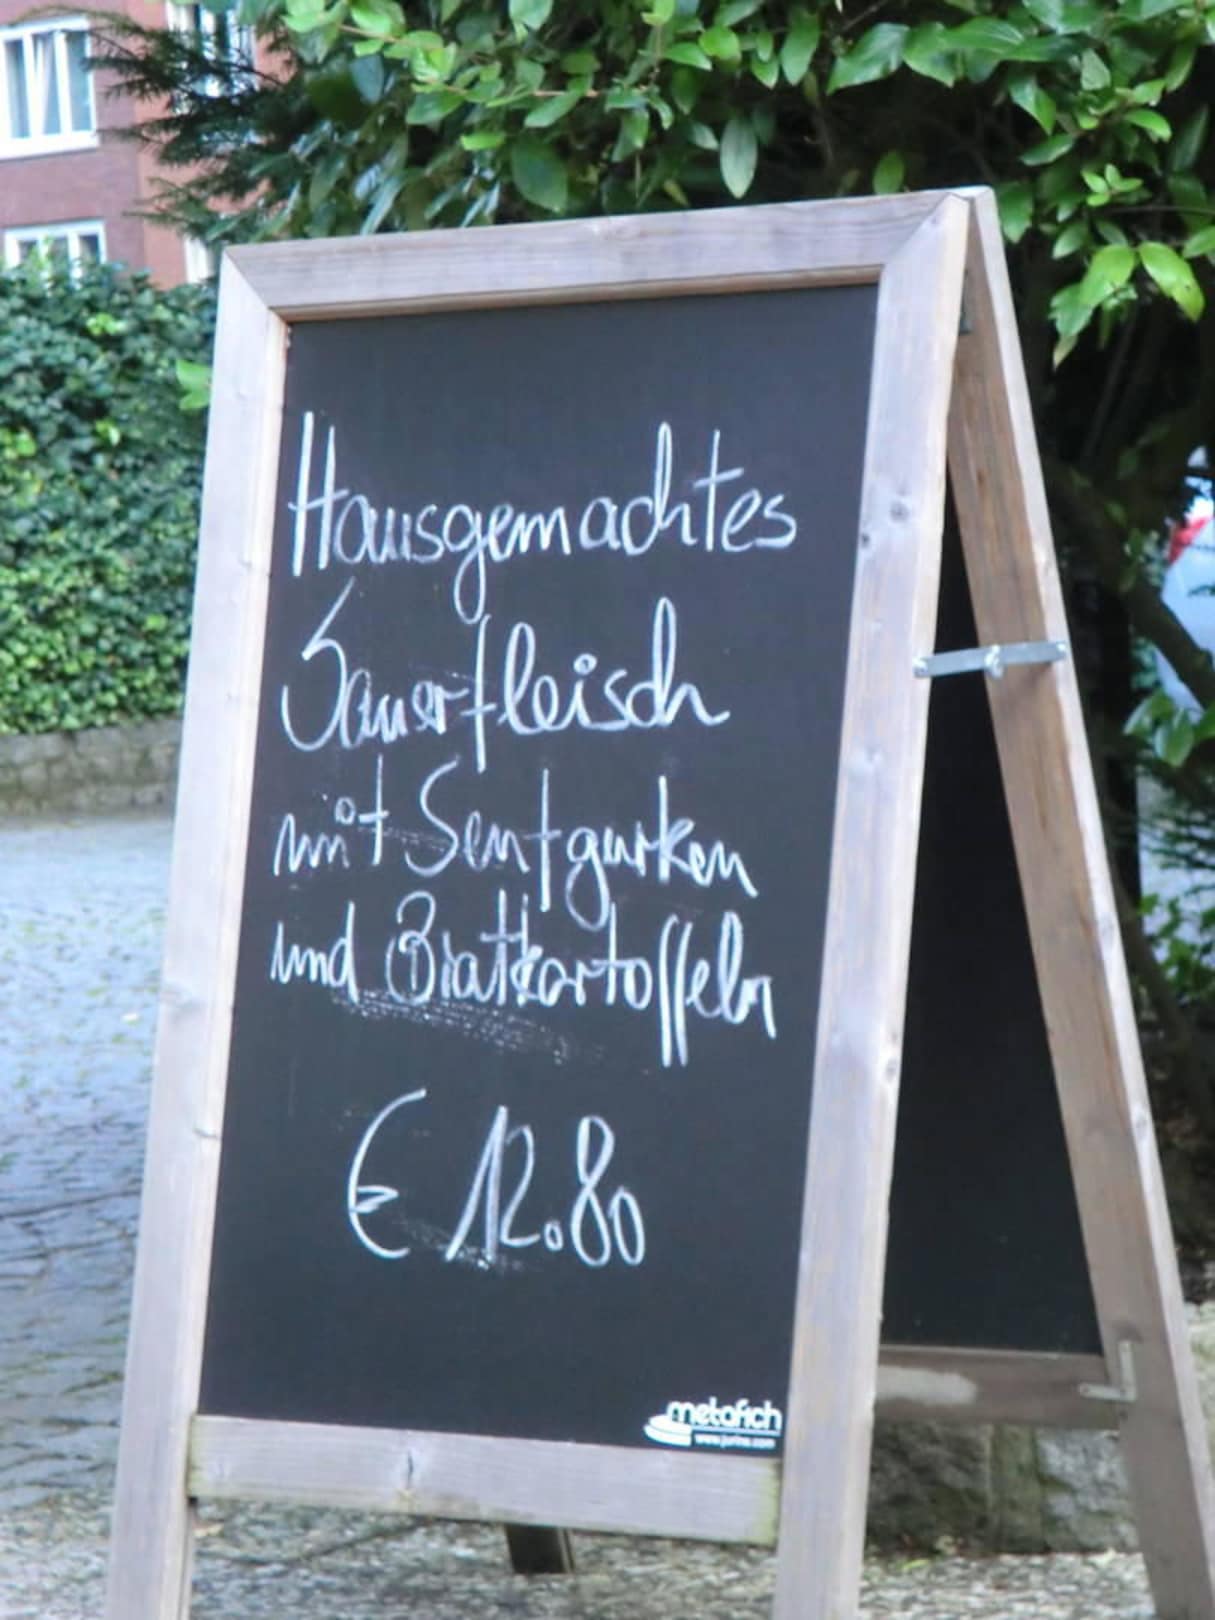 Hausgemachtes
Sauerfleisch
mit Senfgurken
und Bratkartoffeln
€ 12.80
metafich